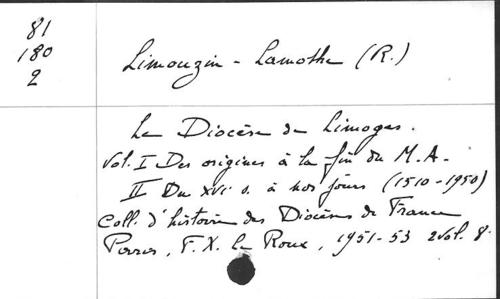 81
180
2
Limouzin - Lamothe (R.)
Le Diocèse de Limoges.
Vol. I Des origines à la fin du M.A.
II Du XVIe s. à nos jours (1510-1950)
Coll. d'histoire des Diocèses de France
F. X. Le Roux, 1951-53 2 vol. 8°